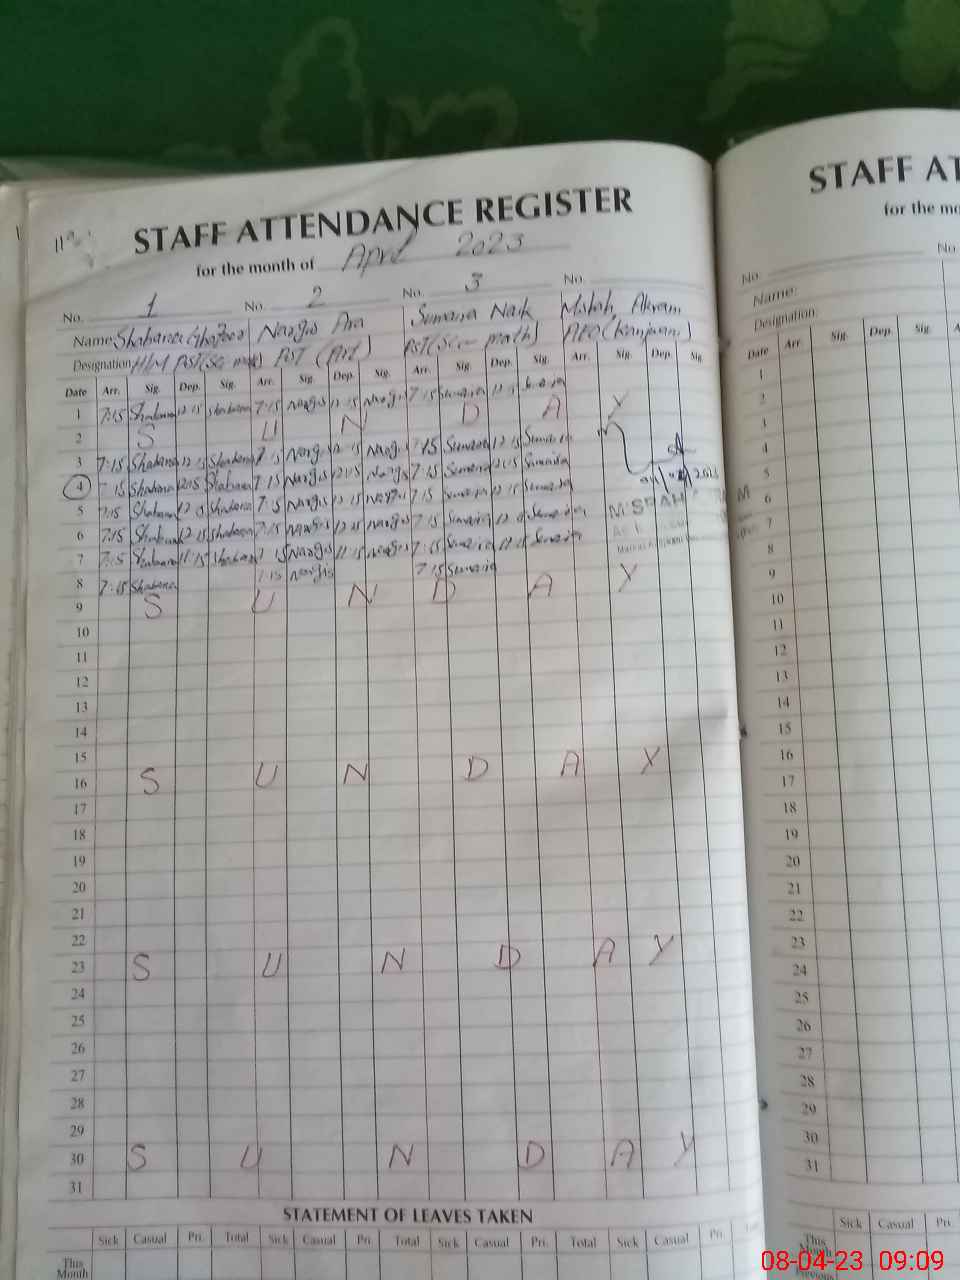 STAFF ATTENDANCE REGISTER
for the month of April 2023
No. 1 No. 2 No. 3 No.
Name: Shabana Ghafoor Nargis Ara Sumaira Naik Misbah Akram
Designation: H/M PST (Sc-math) PST (Art) PST (Sc-math) AEO (Kanjwani)
Date Arr. Sig. Dep. Sig. Arr. Sig. Dep. Sig. Arr. Sig. Dep. Sig. Arr. Sig. Dep. Sig.
1 7:15 Shabana 12:15 Shabana 7:15 Nargis 12:15 Nargis 7:15 Sumaira 12:15 Sumaira
2 S U N D A Y
3 7:15 Shabana 12:15 Shabana 7:15 Nargis 12:15 Nargis 7:15 Sumaira 12:15 Sumaira
4 7:15 Shabana 12:15 Shabana 7:15 Nargis 12:15 Nargis 7:15 Sumaira 12:15 Sumaira
5 7:15 Shabana Shabana 7:15 Nargis 12:15 Nargis 7:15 Sumaira 12:15 Sumaira
6 7:15 Shabana 12:15 Shabana 7:15 Nargis 12:15 Nargis 7:15 Sumaira Sumaira
7 7:15 Shabana 11:15 Shabana 7:15 Nargis 11:15 Nargis 7:15 Sumaira 11:15 Sumaira
8 7:15 Shabana 7:15 Nargis 7:15 Sumaira
9 S U N D A Y
10
11
12
13
14
15
16 S U N D A Y
17
18
19
20
21
22
23 S U N D A Y
24
25
26
27
28
29
30 S U N D A Y
31
STATEMENT OF LEAVES TAKEN
Sick Casual Pri. Total Sick Casual Pri. Total Sick Casual Pri. Total Sick Casual Pri.
This Month
MISBAH
STAFF AT
for the mo
No. No
Name:
Designation:
Date Arr. Sig. Dep. Sig. A
1
2
3
4
5
6
7
8
9
10
11
12
13
14
15
16
17
18
19
20
21
22
23
24
25
26
27
28
29
30
31
Sick Casual Pri.
This Month
Previous
08-04-23 09:09